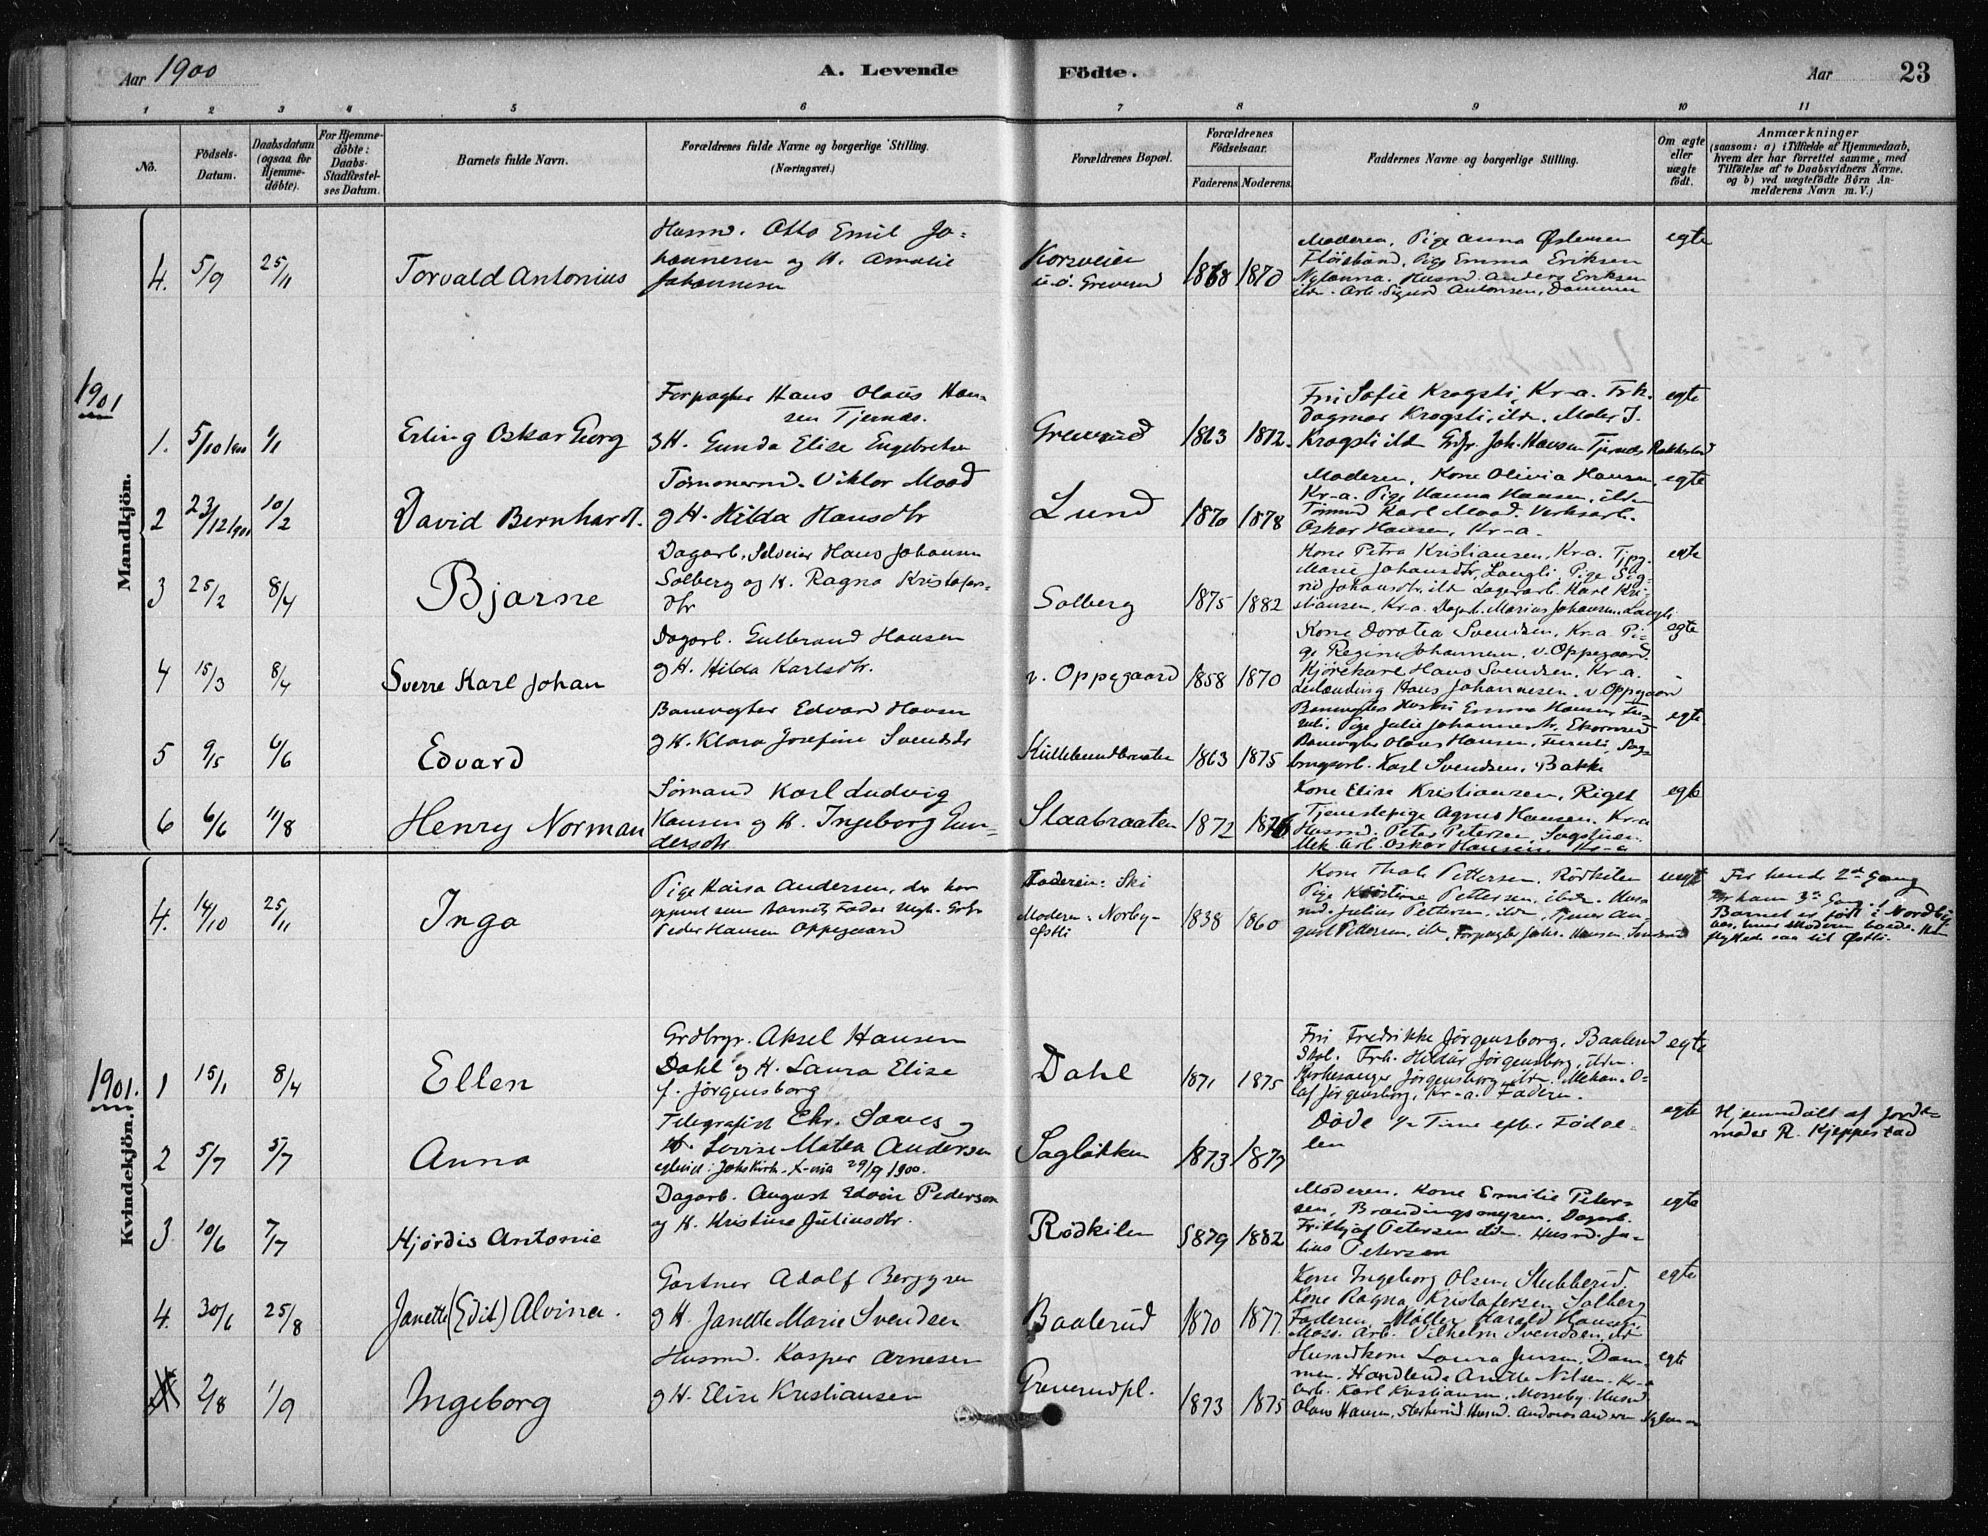 Aar 1900
A. Levende
Födte.
Aar
23
1 2 3 4 5 6 7 8 9 10 11
No.
Födsels-
Datum.
Daabsdatum
(ogsaa for
Hjemme-
döbte).
For Hjemme-
döbte:
Daabs-
Stadfæstel-
ses Datum.
Barnets fulde Navn.
Forældrenes fulde Navne og borgerlige Stilling.
(Næringsvei.)
Forældrenes Bopæl.
Forældrenes
Födselsaar.
Faderens. Moderens.
Faddernes Navne og borgerlige Stilling.
Om ægte
eller
uægte
födt.
Anmærkninger
(saasom: a) i Tilfælde af Hjemmedaab,
hvem der har forrettet samme, med
Tilföielse af to Daabsvidners Navne.
og b) ved uægtefödte Börn An-
melderens Navn m. V.)
Mandkjön.
4. 5/9 25/11
Torvald Antonius
Husmd. Otto Emil Jo-
hannesen og H. Amalie
Johannesen
Korsveien
u. ö. Greverud
1868 1870
Moderen, Pige Anna Östensen
Flöisbönd, Pige Emma Eriksen
Nylænna. Husmd. Anders Eriksen
ibdn. Arb. Sigurd Antonsen, Dammen
egte
1901
1. 5/10 1900 1/1
Erling Oskar Georg
Forpagter Hans Olaus Han-
sen Tjernæs.
og H. Gunda Elise Engebretsen
Greverud
1863 1872.
Fru Sofie Krogsti, Kr-a. Frk.
Dagmar Krogsti, ibdn. Maler J.
Krogsti ibd. Grbr. Joh. Hansen Tjernæs Rakkestad
egte
2 23/12 1900 10/2
David Bernhardt.
Tömmermd. Viktor Mood
og H. Hilda Hansdtr
Lund
1870 1878
Moderen, Kone Olivia Hansen,
Kr-a. Pige Hanna Hansen, ibdn
Tömmd Karl Mood. Verksarb.
Oskar Hansen, Kr-a.
egte
3 25/2 8/4
Bjarne
Dagarb. Selveier Hans Johansen
Solberg og H. Ragna Kristofers-
dtr
Solberg
1875 1882
Kone Petra Kristiansen, Kr-a.
Marie Johansdtr, Langli. Pige Sig-
rid Johansdtr. ibd Lagerarb. Karl Kri-
stiansen, Kr-a. Dagarb. Marius Johansen, Langli
egte
4 15/3 8/4
Sverre Karl Johan
Dagarb. Gulbrand Hansen
og H. Hilda Karlsdtr.
v. Oppegaard
1858 1870
Kone Dorotea Svendsen, Kr-a. Pi-
ge Regine Johannesen, v. Oppegaard.
Kjörekarl Hans Svendsen, Kr-a.
Hans Johannesen. v. Oppegaard
egte
5 9/5 6/6
Edvard
Banevogter Edvard Hansen
og H. Klara Josefine Svendsdr
Kullebundbraaten
1863 1875
Banevogters Hustru Emma Hansen
Pige Julie Johannesdtr, Ekornrud
Banevogter Olaus Hansen,
Karl Svendsen, Bakke
egte
6 6/6 11/8
Henry Norman
Sömand Karl Ludvig
Hansen og H. Ingeborg Gun-
dersdtr
Slaabraaten
1872 1876
Kone Elise Kristiansen, Riget
Tjenestepige Agnes Hansen. Kr-a
Husmd. Peter Petersen, Sagstuen
Mek. Arb. Oskar Hansen Kr-a
egte
Kvindekjön.
4. 14/10 25/11
Inga
Pige Kaisa Andersen, der har
opgivet som Barnets Fader Ungk. Grbr
Peder Hansen Oppegaard
Faderen: Ski
Moderen: Norby-
Östli
1838 1860
Kone Thale Pettersen, Rödkilen
Pige Kristine Pettersen, ibdn. Hus-
md. Julius Pettersen, ibdn, Tjener Au-
gust Pettersen, ibd, Forpagter Johs. Hansen
uegt
For hende 2den Gang
For ham 3die Gang.
Barnet er födt i Nordby
Moderen boede. Hun
flyttede saa til Östli.
1901.
1 15/1 8/4
Ellen
Grdbrgr. Aksel Hansen
Dahl og H. Laura Elise
f. Jörgensborg
Dahl
1871 1875
Fru Fredrikke Jörgensborg, Baalerud
Skol. Frk. Hildur Jörgensborg, ibdn.
Kirkesanger Jörgensborg, ibd. Mekan. O-
laf Jörgensborg, Kr-a. Faderen.
egte
2 5/7 5/7
Anna
Telegrafist Chr. Saves og
H. Lovise Matea Andersen
egteviet: Johs Kirk. X-nia 29/9 1900.
Saglökken
1873 1877
Döde 1/2 Time efter Födse-
len
egte
Hjemmedöbt af Jorde-
moder R. Kjeppestad
3 10/6 7/7
Hjördis Antonie
Dagarb. August Edvin Pederson
og H. Kristine Juliusdtr.
Rödkilen
1879 1882
Moderen, Kone Emilie Peter-
sen, Brændingsmyren. Dagarb.
Frithjof Petersen ibdn. Husmd. Ju-
lius Petersen
egte
4. 30/6 25/8
Janette (Edit) Alvina.
Gartner Adolf Bergersen
og H. Janette Marie Svendsen
Baalerud
1870 1877.
Kone Ingeborg Olsen, Stubberud.
Kone Ragna Kristofersen, Solberg
Faderen, Möller Harald Hansen,
Moss. Arb. Vilhelm Svendsen, ibd
egte
2/8 1/9
Ingeborg
Husmd. Kasper Arnesen
og H. Elise Kristiansen
Greverudpl.
1873 1875
Husmdkone Laura Jensen, Dam-
men. Handlende Anette Nilsen, Kr-a
Arb. Karl Kristiansen, Mosseby. Husmd.
Olaus Hansen, Husmd. Andreas Andersen
egte